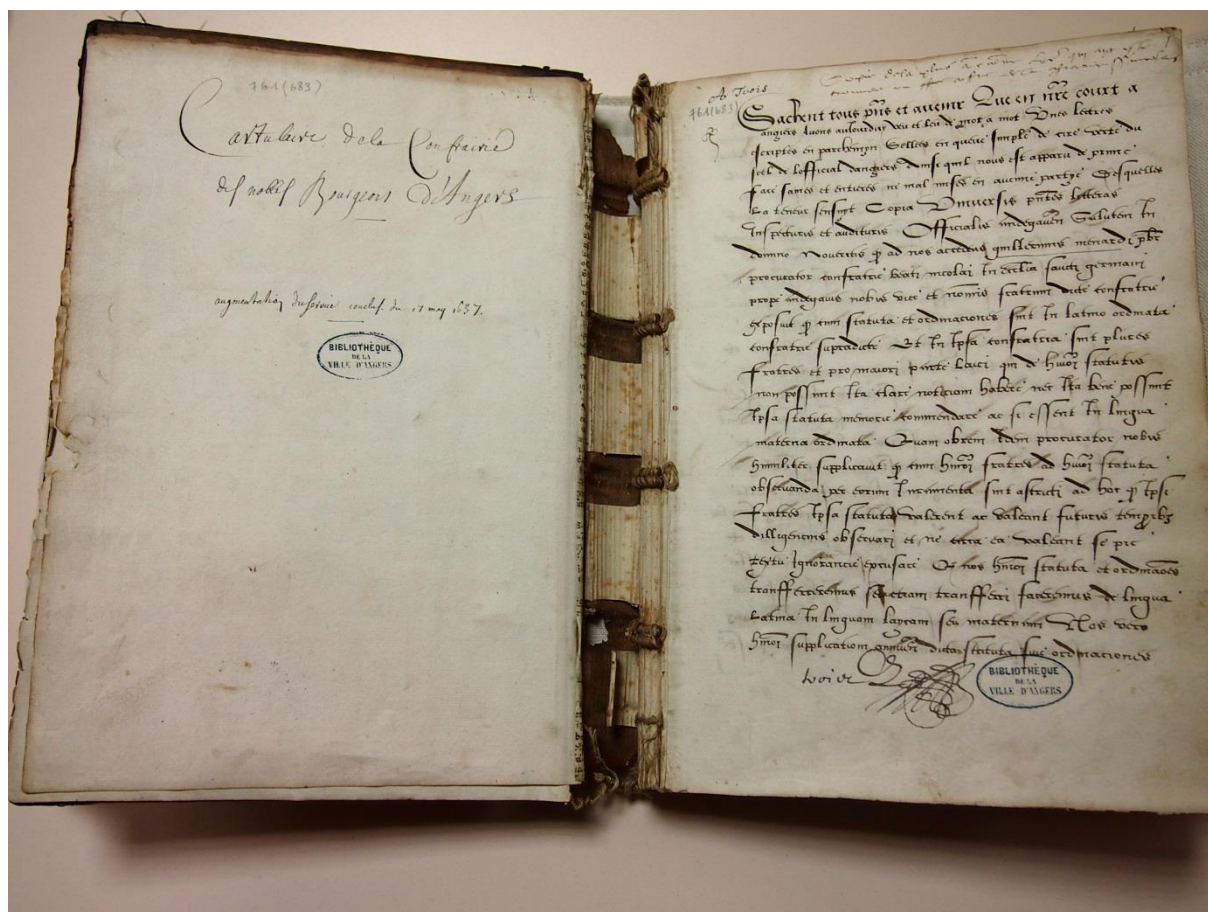 761 (683)
Cartulaire de la Confrairie
des nobles Bourgeois d'Angers
augmentation du service conclus. du 17 may 1637.
BIBLIOTHÈQUE
DE LA
VILLE D'ANGERS
Copie de la plus
A Trois
761 (683)
Sachent tous pñs et avenir Que en nře court a
angiers avons auiourduy veu et leu de mot a mot Unes lectres
escriptes en parchemyn Sellees en queue simple de cire verte du
seel de lofficial dangiers ainsi quil nous est apparu de prime
face saines et entieres ne mal mises en aucune partye Desquelles
La teneur sensuyt Copia Universis pñtes litteras
Inspecturis et audituris Officialis andegaveñ Salutem In
domino Noveritis q ad nos accedens guillermus menardi pbr
procurator confratrie beati nicolai In ecclia sancti germani
prope andegavis nobis vice et nomine fratrum dicte confratrie
exposuit q cum statuta et ordinaciones sint In latino ordinata
confratrie supradicte Et In Ipsa confratria sint plures
fratres et pro maiori parte Layci qui de huiõi statutis
non possint Ita clare noticiam habere nec Ita bene possint
Ipsa statuta memorie commendare ac si essent In lingua
materna ordinata Quam obrem Idem procurator nobis
humiliter supplicavit q cum hmõi fratres ad huiõi statuta
observanda per eorum Iuramenta sint astricti ad hoc q Ipsi
fratres Ipsa statuta valerent ac valeant futuris temporibz
dilligencius observari et ne circa ea valeant se pre
textu Ignorancie excusare Et nos hmõi statuta et ordinaões
transfferremus seu etiam transfferri faceremus de lingua
Latina In linguam laycam seu maternam Nos vero
hmõi supplicationi statuta sive ordinaciones
BIBLIOTHÈQUE
DE LA
VILLE D'ANGERS